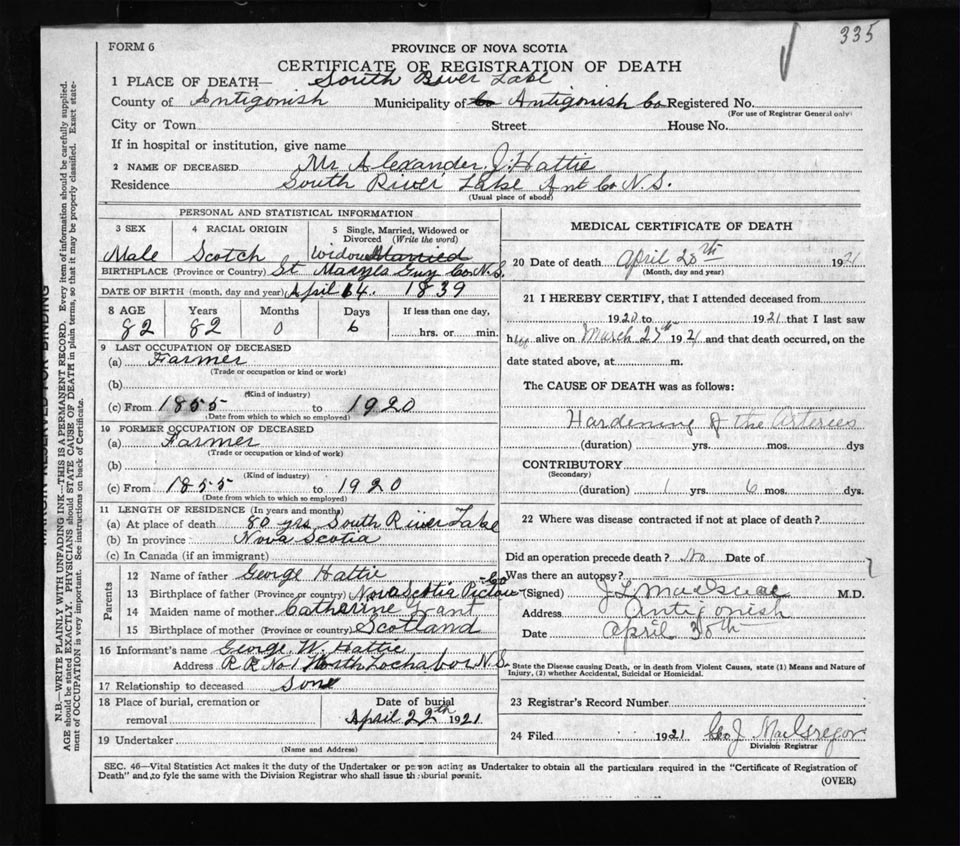 335
FORM 6
PROVINCE OF NOVA SCOTIA
CERTIFICATE OF REGISTRATION OF DEATH
1 PLACE OF DEATH— South River Lake
County of Antigonish Municipality of Co Antigonish Co Registered No.
(For use of Registrar General only)
City or Town Street House No.
If in hospital or institution, give name
2 NAME OF DECEASED Mr Alexander J. Hattie
Residence South River Lake Ant Co N.S.
(Usual place of abode)
PERSONAL AND STATISTICAL INFORMATION
3 SEX 4 RACIAL ORIGIN 5 Single, Married, Widowed or Divorced (Write the word)
Male Scotch Widow Married
BIRTHPLACE (Province or Country) St Marys Guy Co N.S.
DATE OF BIRTH (month, day and year) April 14. 1839
8 AGE Years Months Days If less than one day,
82 82 0 6 hrs. or min.
9 LAST OCCUPATION OF DECEASED
(a) Farmer
(Trade or occupation or kind or work)
(b)
(Kind of industry)
(c) From 1855 to 1920
(Date from which to which so employed)
10 FORMER OCCUPATION OF DECEASED
(a) Farmer
(Trade or occupation or kind of work)
(b)
(Kind of industry)
(c) From 1855 to 1920
(Date from which to which so employed)
11 LENGTH OF RESIDENCE (In years and months)
(a) At place of death 80 yrs South River Lake
(b) In province Nova Scotia
(c) In Canada (if an immigrant)
Parents
12 Name of father George Hattie
13 Birthplace of father (Province or country) Nova Scotia Pictou Co
14 Maiden name of mother Catharine Grant
15 Birthplace of mother (Province or country) Scotland
16 Informant's name George W. Hattie
Address R R No 1 North Lochabor N.S.
17 Relationship to deceased Son
18 Place of burial, cremation or removal Date of burial
April 22th 1921
19 Undertaker
(Name and Address)
MEDICAL CERTIFICATE OF DEATH
20 Date of death April 20th 1921
(Month, day and year)
21 I HEREBY CERTIFY, that I attended deceased from
1920 to 1921 that I last saw
h alive on March 25th 1921 and that death occurred, on the
date stated above, at m.
The CAUSE OF DEATH was as follows:
Hardening of the Arteries
(duration) yrs. mos. dys
CONTRIBUTORY
(Secondary)
(duration) 1 yrs. 6 mos. dys.
22 Where was disease contracted if not at place of death?
Did an operation precede death? No Date of
Was there an autopsy?
(Signed) J L MacIsaac M.D.
Address Antigonish
Date April 30th
State the Disease causing Death, or in death from Violent Causes, state (1) Means and Nature of
Injury, (2) whether Accidental, Suicidal or Homicidal.
23 Registrar's Record Number
24 Filed 1921 Geo J. MacGregor
Division Registrar
SEC. 46—Vital Statistics Act makes it the duty of the Undertaker or person acting as Undertaker to obtain all the particulars required in the "Certificate of Registration of
Death" and to fyle the same with the Division Registrar who shall issue the burial permit.
(OVER)
MARGIN RESERVED FOR BINDING
N.B.—WRITE PLAINLY WITH UNFADING INK—THIS IS A PERMANENT RECORD. Every item of information should be carefully supplied.
AGE should be stated EXACTLY. PHYSICIANS should STATE CAUSE OF DEATH in plain terms, so that it may be properly classified. Exact state-
ment of OCCUPATION is very important. See instructions on back of Certificate.